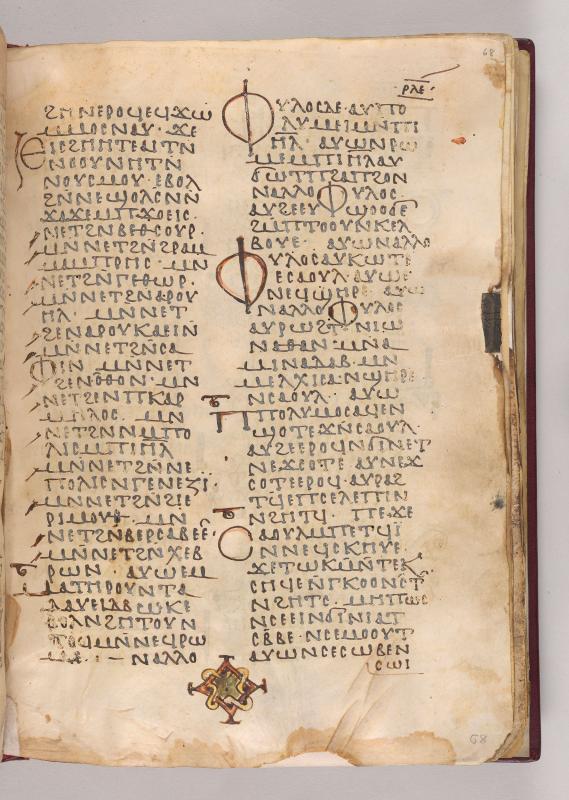 68
ⲣⲗⲉ
ϩⲏⲛⲉⲣⲟϥⲉϥϫⲱ
ⲙⲙⲟⲥⲛⲁⲩ· ϫⲉ
ⲉⲓⲉϩⲏⲏⲧⲉⲁⲓⲧⲛ
ⲛⲟⲟⲩⲛⲏⲧⲛ
ⲛⲟⲩⲥⲙⲟⲩ· ⲉⲃⲟⲗ
ϩⲛⲛⲉϣⲟⲗⲥⲛⲛ
ϫⲁϫⲉⲙⲡϫⲟⲉⲓⲥ·
ⲛⲉⲧϩⲛⲃⲉⲑⲥⲟⲩⲣ·
ⲙⲛⲛⲉⲧϩⲛϩⲣⲁⲙ
ⲙⲛ
ⲛⲉⲧϩⲛⲅⲉⲑⲱⲣ·
ⲙⲛⲛⲉⲧϩⲛⲁⲣⲟⲩ
ⲏⲗ· ⲙⲛⲛⲉⲧ
ϩⲉⲛⲁⲣⲟⲩⲕⲁⲉⲓⲛ
ⲙⲛⲛⲉⲧϩⲛⲥⲁ
ⲫⲓⲛ ⲙⲛⲛⲉⲧ
ϩⲉⲛⲑⲟⲑ· ⲙⲛ
ⲛⲉⲧϩⲉⲛⲡⲕⲁⲣ
ⲙⲏⲗⲟⲥ· ⲙⲛ
ⲛⲉⲧϩⲛⲙⲡⲟ
ⲗⲓⲥⲙⲡⲓⲏⲗ
ⲙⲛⲛⲉⲧϩⲛⲛⲉ
ⲡⲟⲗⲓⲥⲛⲅⲉⲛⲉⲍⲓ·
ⲙⲛⲛⲉⲧϩⲛϩⲓⲉ
ⲣⲓⲙⲟⲩⲑ· ⲙⲛ
ⲛⲉⲧϩⲛⲃⲉⲣⲥⲁⲃⲉⲉ·
ⲙⲛⲛⲉⲧϩⲛⲭⲉⲃ
ⲣⲱⲛ· ⲁⲩⲱⲉⲙ
ⲙⲁⲧⲏⲣⲟⲩⲛⲧⲁ
ⲇⲁⲩⲉⲓⲇⲃⲱⲕⲉ
ⲃⲟⲗⲛϩⲏⲧⲟⲩⲛ
ⲧⲟϥⲙⲛⲛⲉϥⲣⲱ
ⲙⲉ· ⲛⲁⲗⲗⲟ
ⲫⲩⲗⲟⲥⲇⲉ·ⲁⲩⲡⲟ
ⲗⲩⲙⲉⲓⲙⲛⲡⲓ
ⲏⲗ· ⲁⲩⲱⲛⲣⲱ
ⲙⲉⲙⲡⲓⲏⲗⲁⲩ
ϭⲱⲧⲡϩⲁⲡϩⲟⲛ
ⲛⲁⲗⲗⲟⲫⲩⲗⲟⲥ·
ⲁⲩϩⲉⲉⲩϣⲟⲟϭⲉ
ϩⲙⲡⲧⲟⲟⲩⲛⲕⲉⲗ
ⲃⲟⲩⲉ· ⲁⲩⲱⲛⲁⲗⲗⲟ
ⲫⲩⲗⲟⲥⲁⲩⲕⲱⲧⲉ
ⲉⲥⲁⲟⲩⲗ·ⲁⲩⲱⲉ
ⲛⲉϥϣⲏⲣⲉ· ⲁⲩⲱ
ⲛⲁⲗⲗⲟⲫⲩⲗⲟⲥ
ⲁⲩⲣⲱϩⲧⲛⲓⲱ
ⲛⲁⲑⲁⲛ· ⲙⲛⲁ
ⲙⲓⲛⲁⲇⲁⲃ· ⲙⲛ
ⲙⲉⲗⲭⲓⲥⲁ·ⲛϣⲏⲣⲉ
ⲛⲥⲁⲟⲩⲗ· ⲁⲩⲱ
ⲡⲡⲟⲗⲩⲙⲟⲥⲁϥⲉⲛ
ϣⲟⲧⲉϫⲛⲥⲁⲟⲩⲗ·
ⲁⲩϩⲉⲉⲣⲟϥⲛϭⲓⲛⲉⲧ
ⲛⲉϫⲥⲟⲧⲉ ⲁⲩⲛⲉϫ
ⲥⲟⲧⲉⲉⲣⲟϥ·ⲁⲩⲣⲁϩ
ⲧϥⲉⲡⲥⲉⲗⲉⲡⲓⲛ
ⲛϩⲏⲧϥ· ⲡⲉϫⲉ
ⲥⲁⲟⲩⲗⲙⲡⲉⲧϥⲓ
ⲛⲛⲉϥⲥⲕⲏⲩⲉ·
ϫⲉⲧⲱⲕⲙⲛⲧⲉⲕ
ⲥⲏϥⲉⲛⲅⲕⲟⲟⲛⲥⲧ
ⲛϩⲏⲧⲥ· ⲙⲏⲡⲱⲥ
ⲛⲥⲉⲉⲓⲛϭⲓⲛⲓⲁⲧ
ⲥⲃⲃⲉ·ⲛⲥⲉⲙⲟⲟⲩⲧ
ⲁⲩⲱⲛⲥⲉⲥⲱⲃⲉⲛ
ⲥⲱⲓ
68